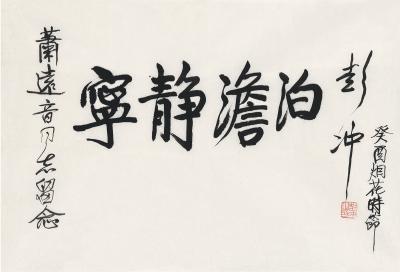 蕭遠音同志留念
寧静澹泊
彭冲
癸酉烟花時节